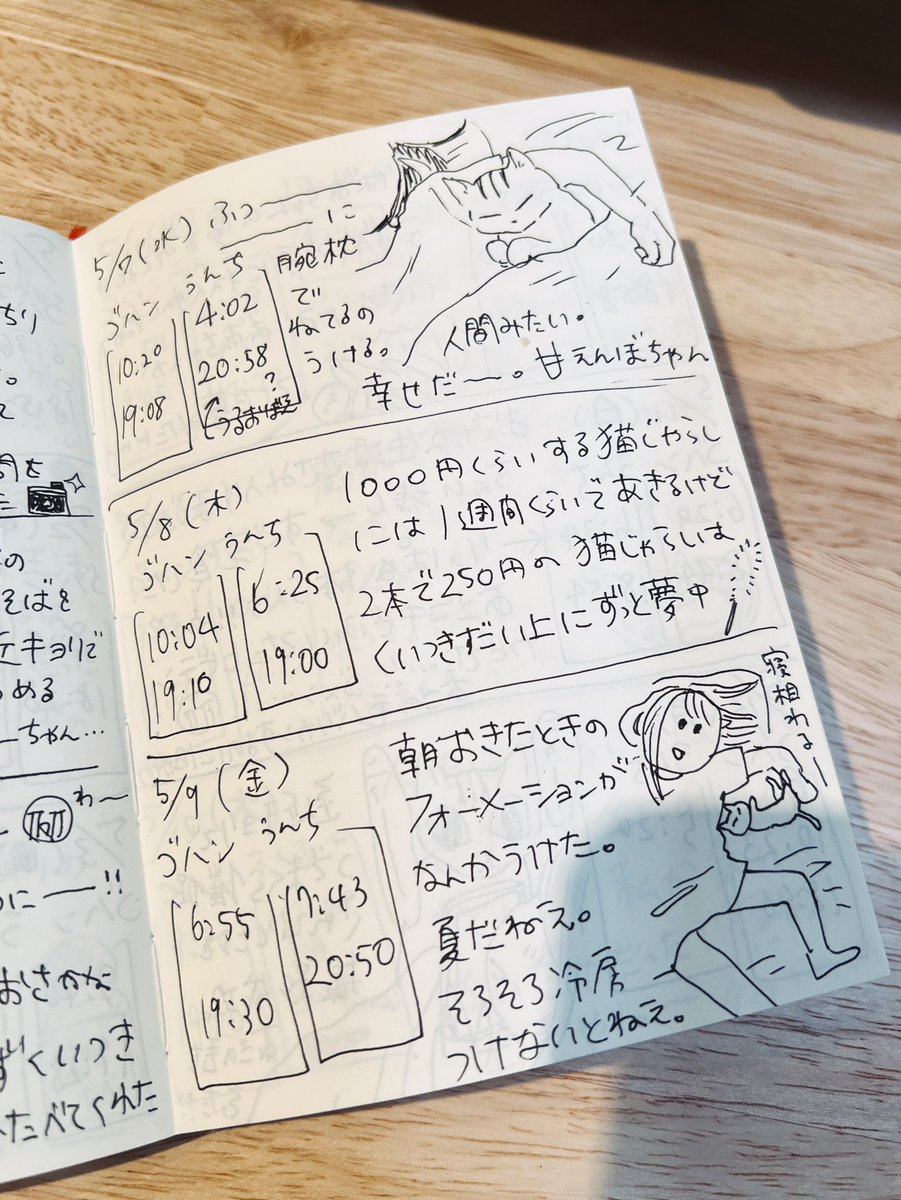 ちり
。
て
間を
の
そばを
近キョリで
める
ーちゃん…
わ〜
に一!!
おさかな
ずくいつき
たべてくれた
5/7(水) ふつ———
———に
ゴハン うんち
10:20
19:08
4:02
20:58
?
腕枕
で
ねてるの
うける。
人間みたい。
幸せだ〜。甘えんぼちゃん
5/8(木)
ゴハン うんち
10:04
19:10
6:25
19:00
1000円くらいする猫じゃらし
には1週間くらいであきるけど
2本で250円の猫じゃらしは
くいつきすごい上にずっと夢中
5/9(金)
ゴハン うんち
6:55
19:30
7:43
20:50
朝おきたときの
フォーメーションが
なんかうけた。
夏だねえ。
そろそろ冷房
つけないとねえ。
寝相わるー